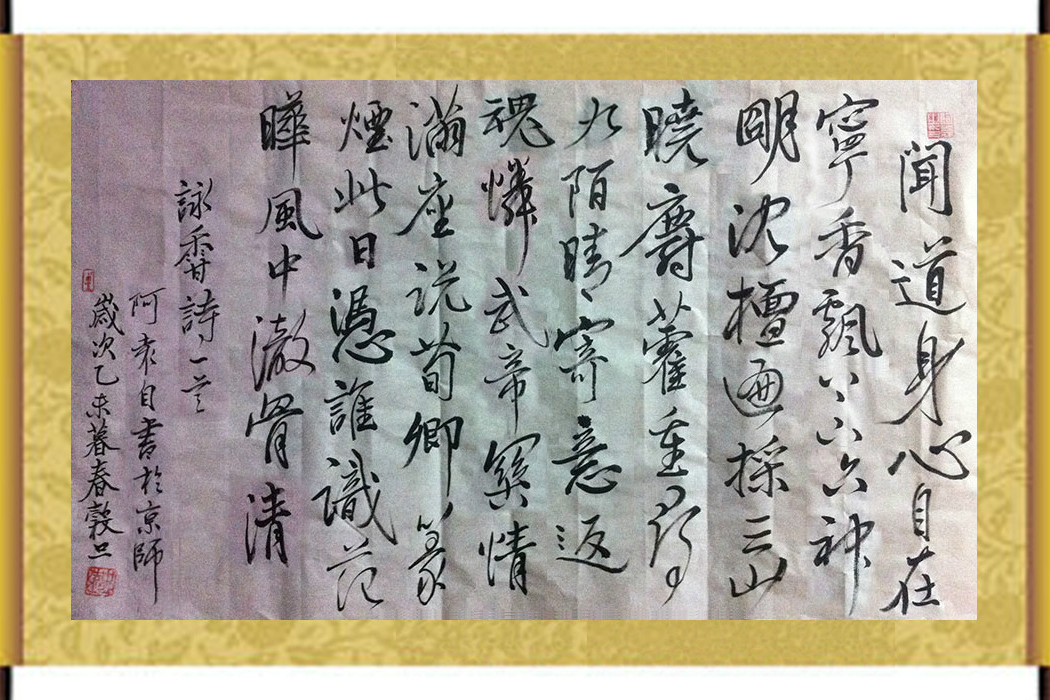 聞道身心自在
寧香飄六六神
明沈檀遍採三山
曉麝藿重尋
九陌晴寄意返
魂憐武帝關情
滿座說荀卿篆
煙此日憑誰識范
曄風中澈骨清
詠香詩一首
阿袁自書於京師
歲次乙未暮春穀旦